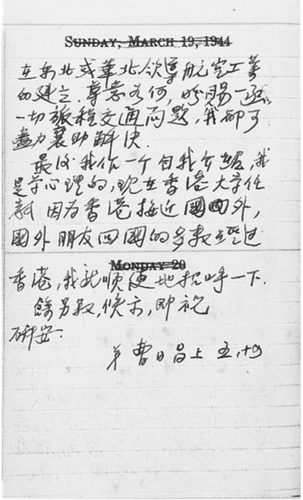 SUNDAY, MARCH 19, 1944
在东北或華北領導航空工業
的建立，尊意如何，盼賜一函。
一切旅程交通问题，我都可
盡力襄助解决。
最後我作一个自我介紹，我
是学心理的，現在香港大学任
教，因为香港接近國内外，
國外朋友回國的多数經过
MONDAY 20
香港，我就顺便地招呼一下。
餘另叙，候示，即祝
研安.
弟 曹日昌上 五，十四